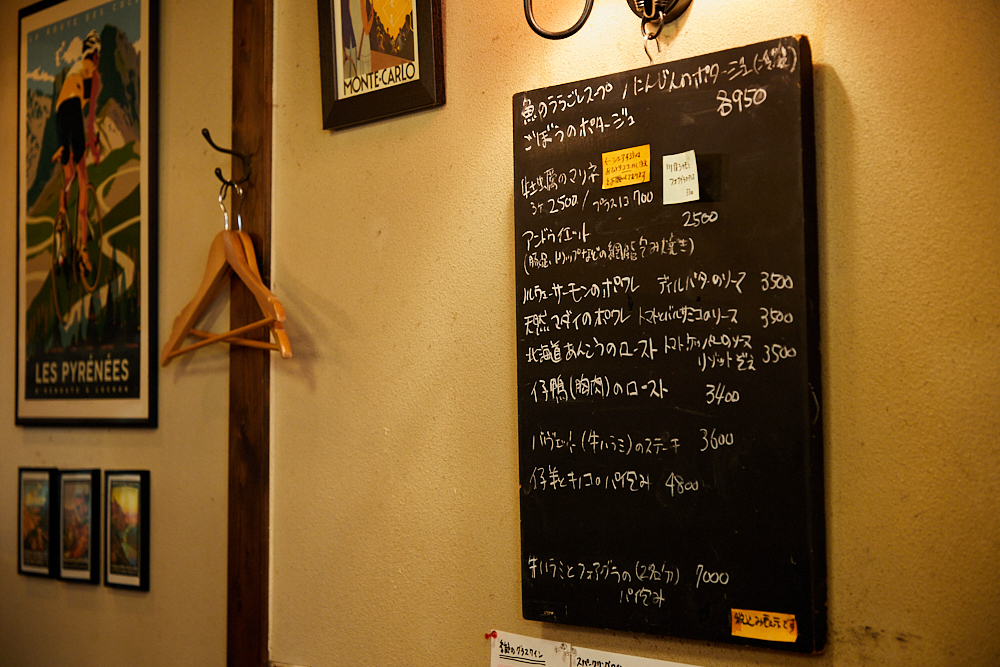 LES PYRÉNÉES
MONTE-CARLO
魚のうらごしスープ / にんじんのポタージュ(冷製)
各950
ごぼうのポタージュ
牡蠣のマリネ
3ヶ 2500 / プラス1コ 700
アンドゥイエット 2500
(豚足、トリップなどの網脂包み焼き)
ノルウェーサーモンのポワレ ディルバターのソース 3500
天然マダイのポワレ トマトとバルサミコのソース 3500
北海道あんこうのロースト トマトケッパーのソース
リゾット添え 3500
仔鴨(胸肉)のロースト 3400
バヴェット(牛ハラミ)のステーキ 3600
仔羊とキノコのパイ包み 4800
牛ハラミとフォアグラの(2名分) 7000
パイ包み
税込み表示です
季節のグラスワイン
スパークリングワイン